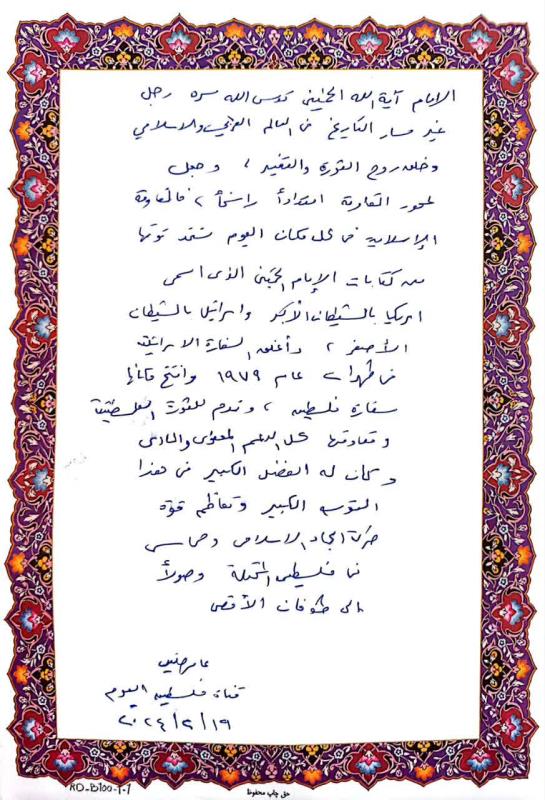 الإمام آية الله الخميني قدس الله سره رجل
غير مسار التاريخ في العالم العربي والاسلامي
وخلق روح الثورة والتغيير ، وجعل
لمحور المقاومة امتداداً راسخاً ، فالمقاومة
الإسلامية في كل مكان اليوم تستمد قوتها
من كتابات الإمام الخميني الذي اسمى
امريكا بالشيطان الأكبر واسرائيل بالشيطان
الأصغر ، وأغلق السفارة الاسرائيلية
في طهران عام ١٩٧٩ وافتتح مكانها
سفارة فلسطين ، وقدم للثورة الفلسطينية
ومقاومتها كل الدعم المعنوي والمادي
وكان له الفضل الكبير في هذا
الكبير وتعاظم قوة
حركة الجهاد الاسلامي وحماس
في فلسطين المحتلة وصولاً
الى طوفان الأقصى
قناة فلسطين اليوم
٢٠٢٤/٢/١٩
RD-B100-1-1
حق چاپ محفوظ